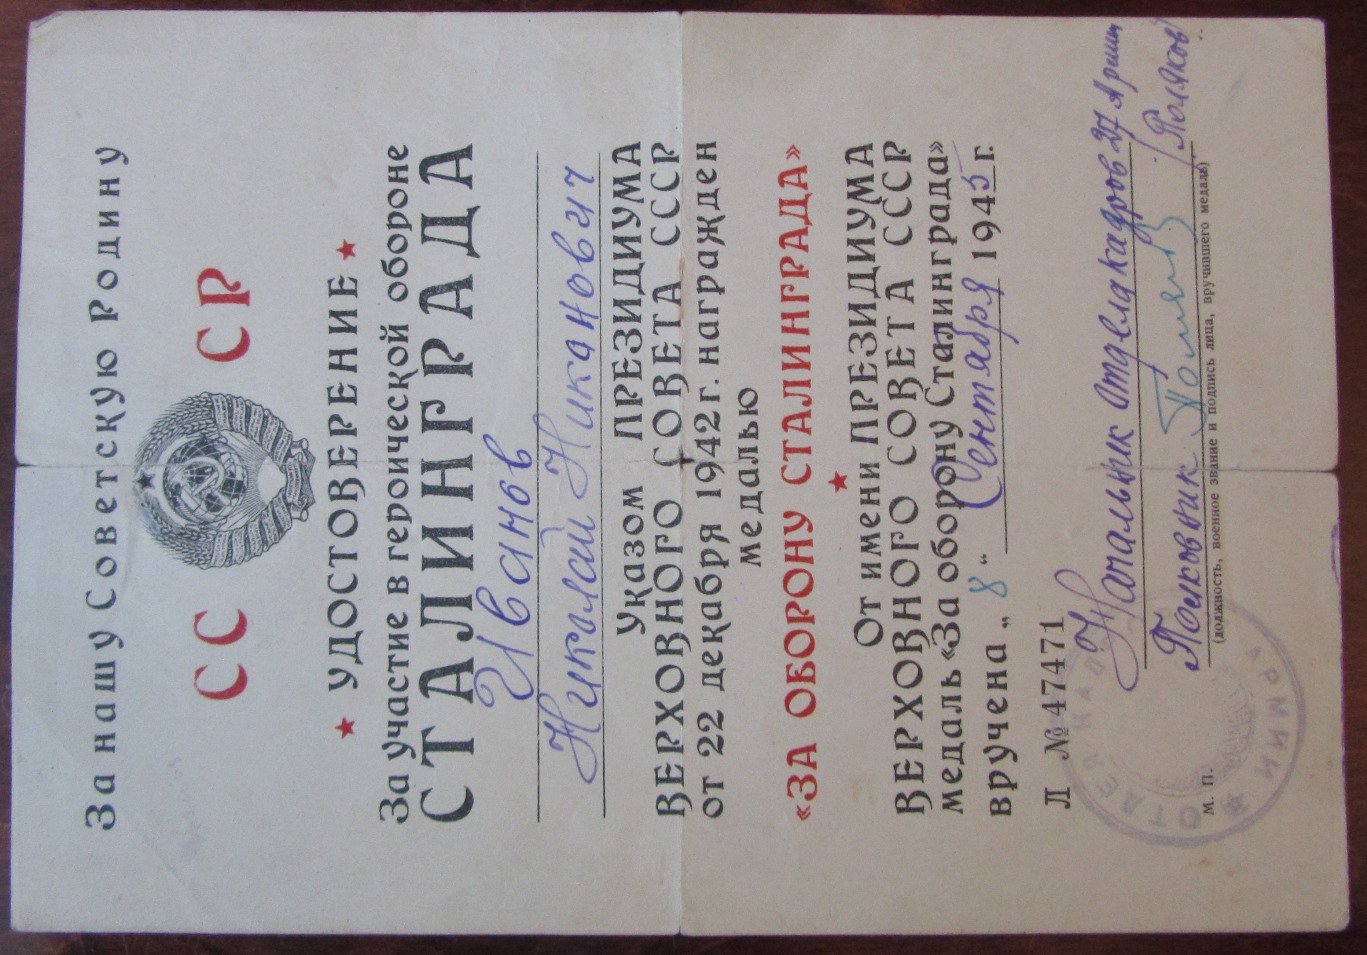 За нашу Советскую Родину
СС СР
★ УДОСТОВЕРЕНИЕ ★
За участие в героической обороне
СТАЛИНГРАДА
Иванов
Николай Никанович
Указом ПРЕЗИДИУМА
ВЕРХОВНОГО СОВЕТА СССР
от 22 декабря 1942 г. награжден
медалью
«ЗА ОБОРОНУ СТАЛИНГРАДА»
★
От имени ПРЕЗИДИУМА
ВЕРХОВНОГО СОВЕТА СССР
медаль «За оборону Сталинграда»
вручена „8“ Сентября 1945 г.
Л № 47471
Начальник отдела кадров 27 Армии
Полковник /Поляков/
М. П. (должность, военное звание и подпись лица, вручившего медаль)
ОТДЕЛ АРМИИ